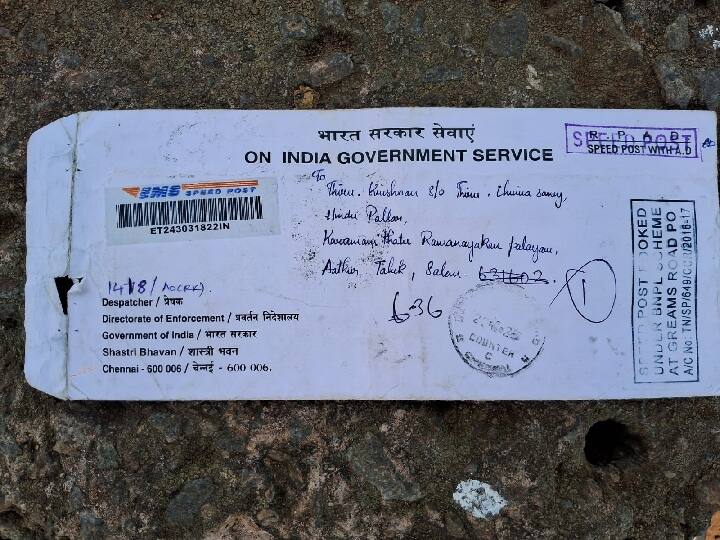 भारत सरकार सेवाएं
ON INDIA GOVERNMENT SERVICE
R P A D
SPEED POST
SPEED POST WITH A.D
EMS SPEED POST
ET243031822IN
To
Thiru. Krishnan S/o Thiru. Chinna Samy,
Hindu Pallan,
Ramanayakan palayam,
Salem 631102.
636
1
SPEED POST BOOKED
UNDER BNPL SCHEME
AT GREAMS ROAD PO
A/C No: TN/SP/649/2016-17
COUNTER
C
14/8/
Despatcher / प्रेषक
Directorate of Enforcement / प्रवर्तन निदेशालय
Government of India / भारत सरकार
Shastri Bhavan / शास्त्री भवन
Chennai - 600 006 / चेन्नई - 600 006.